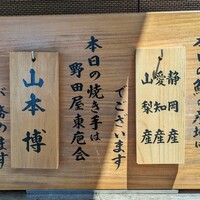 の鰻の産地は
静岡産
愛知産
山梨産
でございます
本日の焼き手は
野田屋東庖会
山本博
が努めます